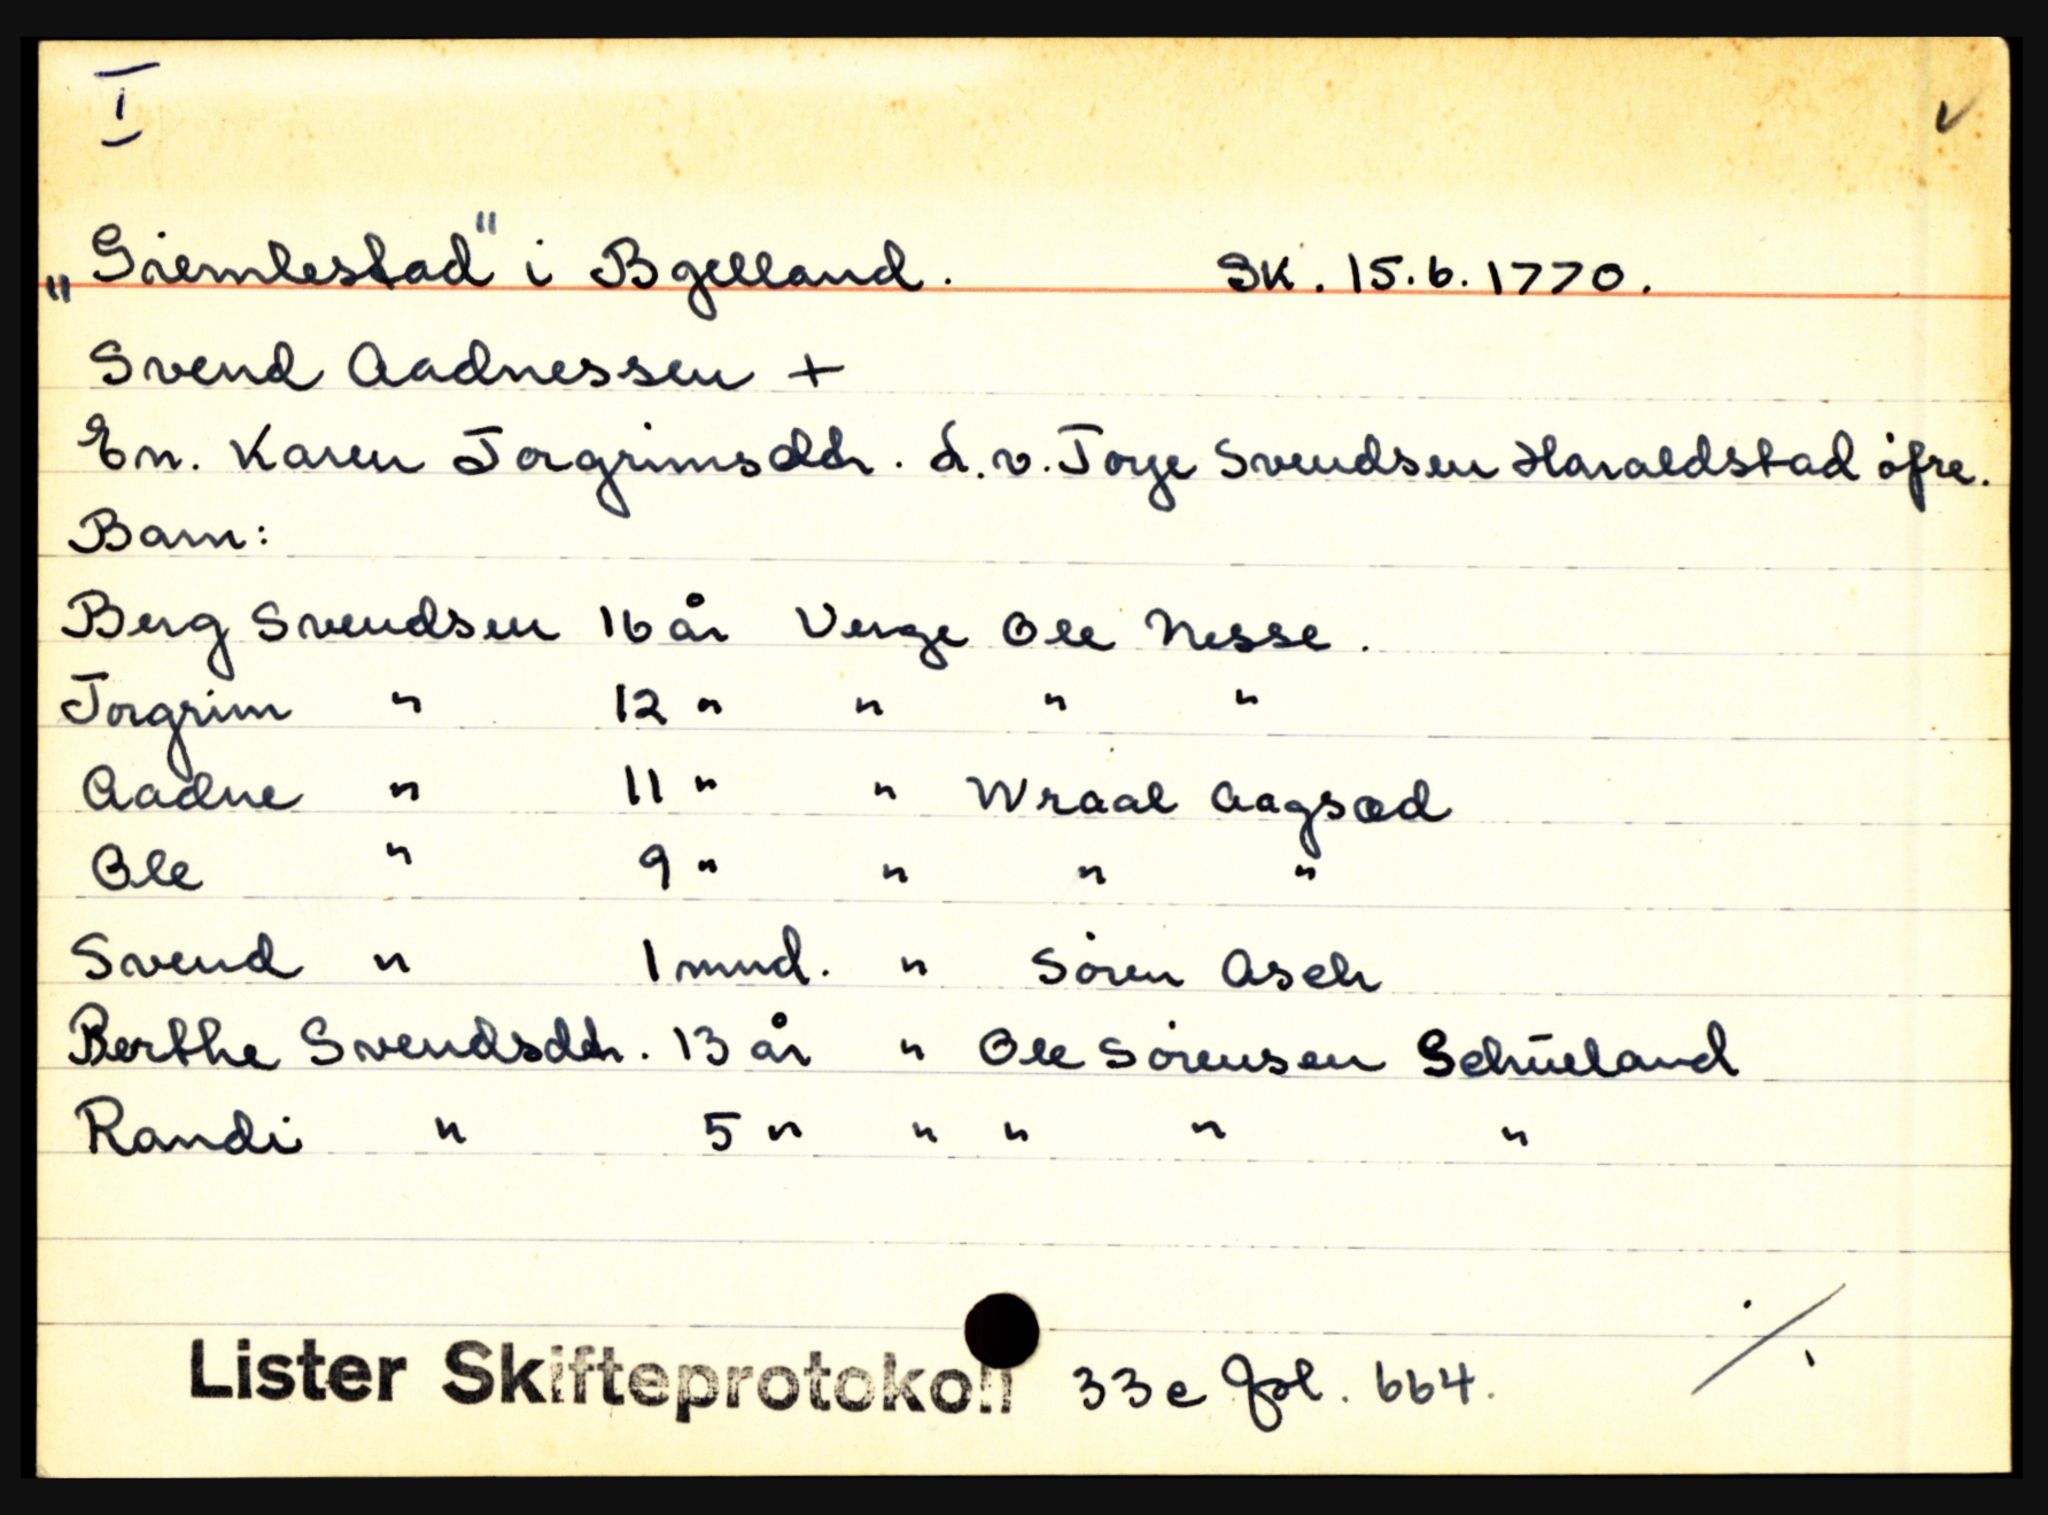 I
„Giemlestad" i Bjelland. Sk. 15.6.1770.
Svend Aadnessen +
En. Karen Torgrimsdtr. L.v. Torje Svendsen Haraldstad öfre.
Barn:
Berg Svendsen 16 år Verge Ole Nesse.
Torgrim " 12 " " " "
Aadne " 11 " " Wraal Aagsæd
Ole " 9 " " " "
Svend " 1 mnd. " Sören Asch
Berthe Svendsdtr. 13 år " Ole Sörensen Schueland
Randi " 5 " " " " "
Lister Skifteprotokoll 33c fol. 664.